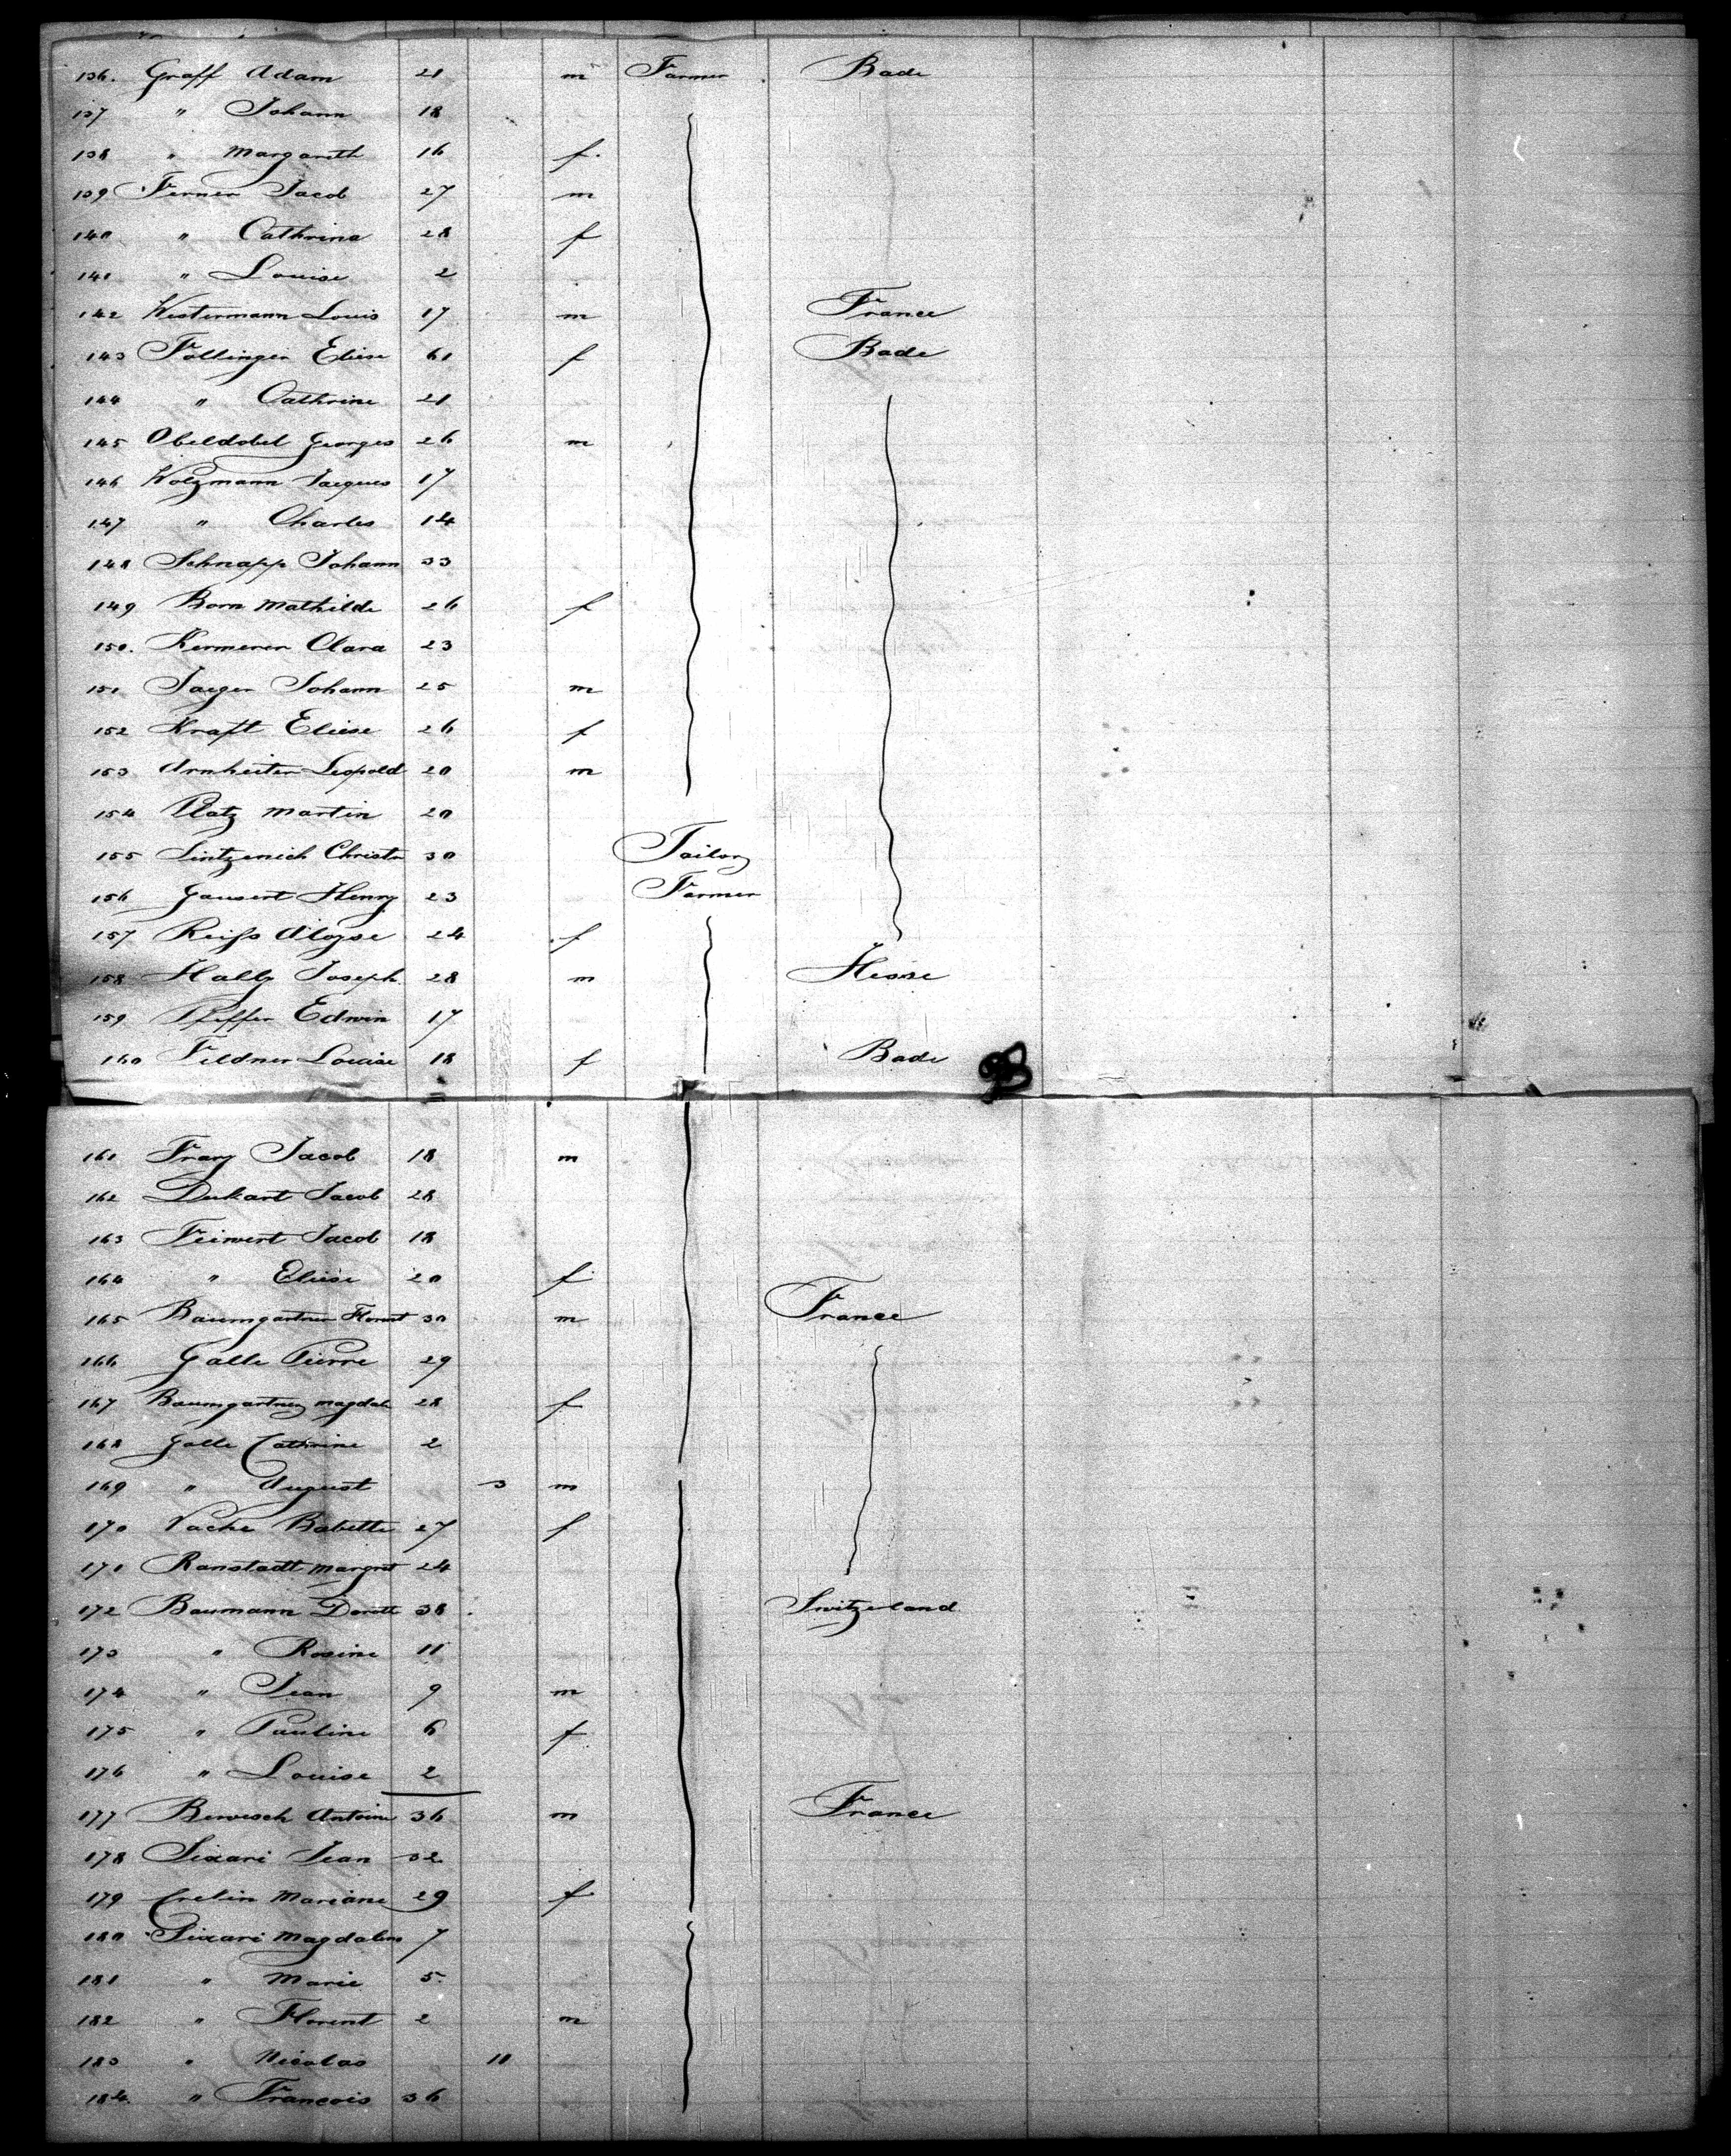 136. Graff Adam 21 m Farmer Bade
137 " Johann 18
138 " Margareth 16 f.
139 Ferner Jacob 27 m
140 " Cathrina 28 f
141 " Louise 2
142 Westermann Louis 17 m France
143 Follinger Eliese 61 f Bade
144 " Cathrine 21
145 Obeldobel Georges 26 m
146 Wolzmann Jacques 17
147 " Charles 14
148 Schnapp Johann 33
149 Born Mathilde 26 f
150. Kermerer Clara 23
151 Jaeger Johann 25 m
152 Kraft Eliese 26 f
153 Arnheiter Leopold 20 m
154 Platz Martin 20
155 Sintzenich Christn 30 Tailor
156 Gausert Henry 23 Farmer
157 Reiss Aloyse 24 f
158 Hally Joseph 28 m Hesse
159 Edwin 17
160 Feldner Louise 18 f Bade
161 Jacob 18 m
162 Deckart Jacob 28
163 Feiwert Jacob 18
164 " Eliese 20 f
165 Baumgartner Florent 30 m France
166 Galle Pierre 29
167 Baumgartner Magdal 28 f
168 Galle Cathrine 2
169 " August 3 m
170 Vache Babette 27 f
171 Ranstadt Margret 24
172 Baumann Dorott 38 Switzerland
173 " Rosine 11
174 " Jean 9 m
175 " Pauline 6 f
176 " Louise 2
177 Antoine 36 m France
178 Sixari Jean 32
179 Crelin Mariane 29 f
180 Sixari Magdalena 7
181 " Marie 5
182 " Florent 2 m
183 " Nicolas 10
184. " Francois 36